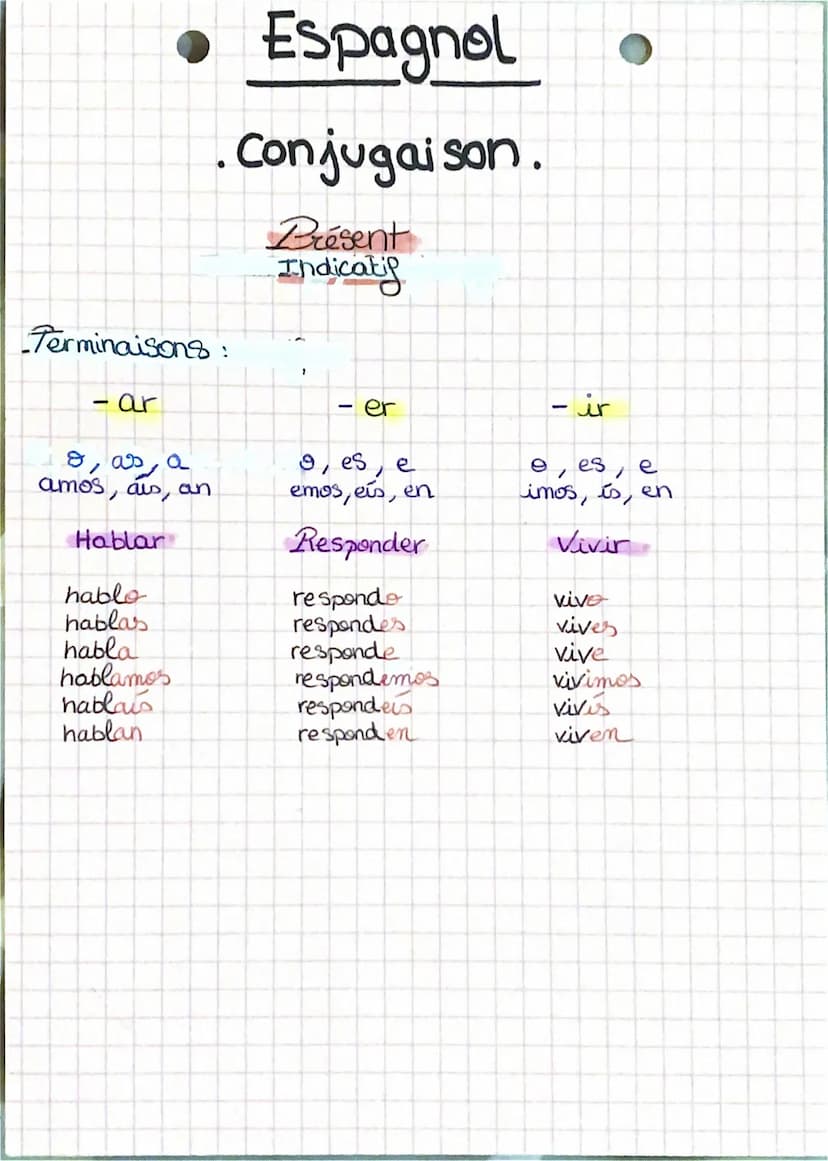 Espagnol
. Conjugaison .
Présent
Indicatif
- Terminaisons :
- ar - er - ir
o, as, a o, es, e o, es, e
amos, áis, an emos, eís, en imos, ís, en
Hablar Responder Vivir
hablo respondo vivo
hablas respondes vives
habla responde vive
hablamos respondemos vivimos
hablaís respondeís vivís
hablan responden viven